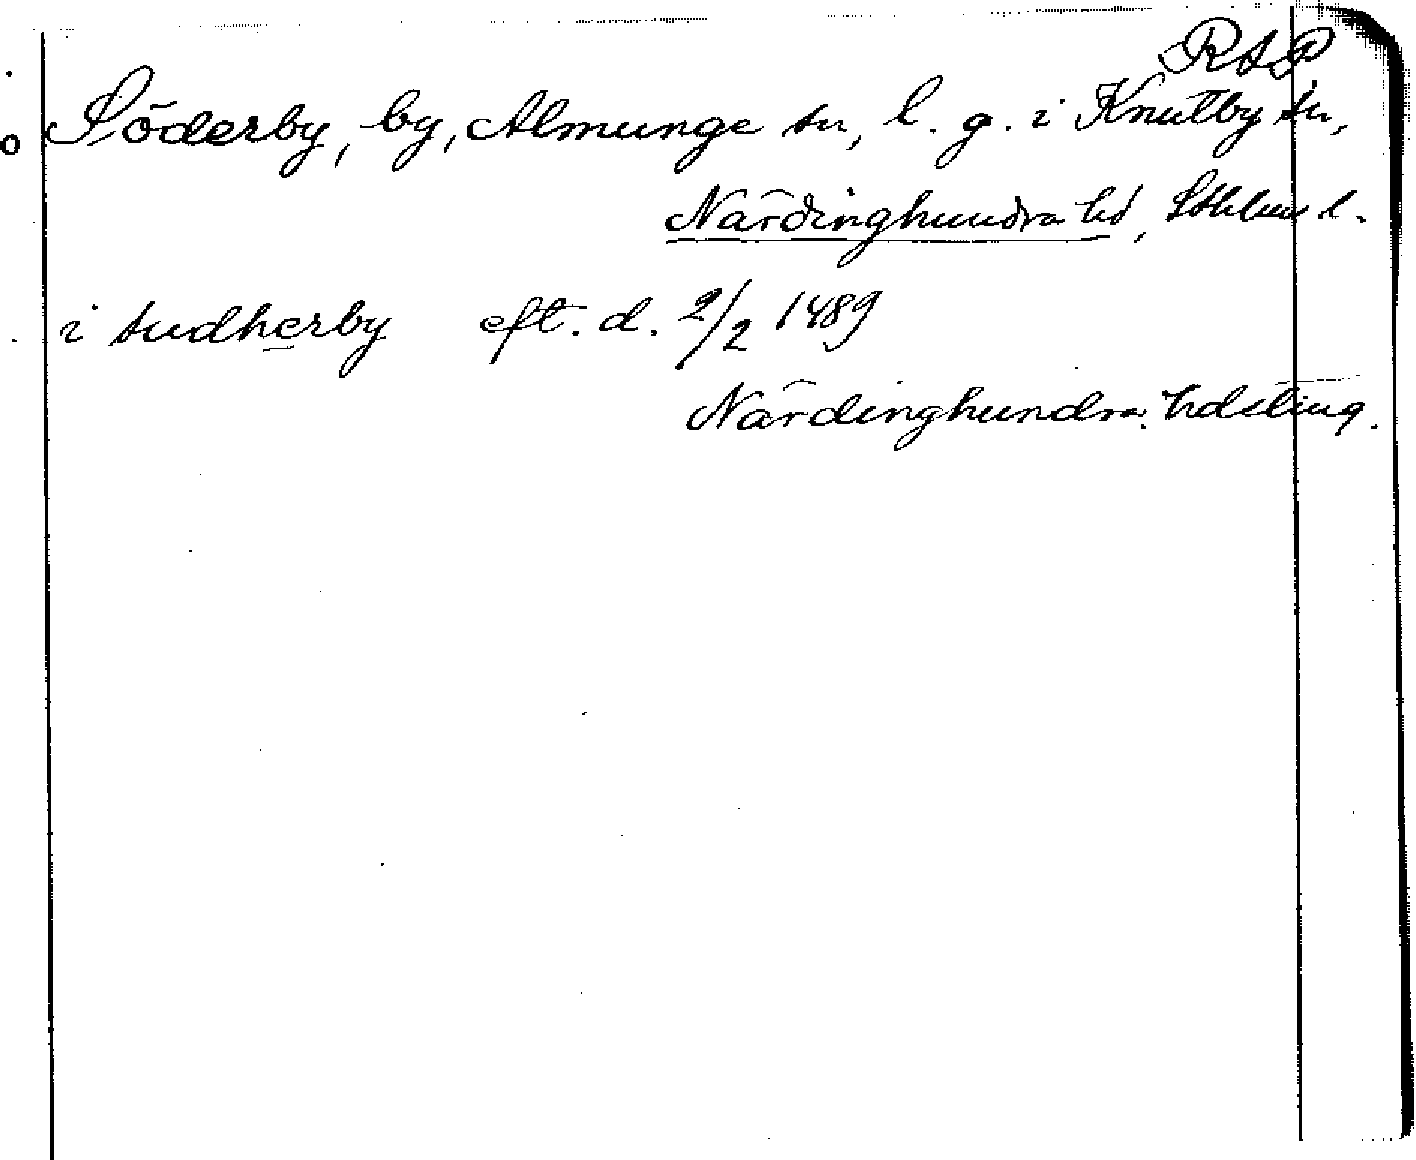 RAP
Söderby, by, Almunge sn, l. g. i Knutby sn,
Närdinghundra hd, Sthlms l.
i sudherby eft. d. 2/2 1489
Närdinghundra hdsting.